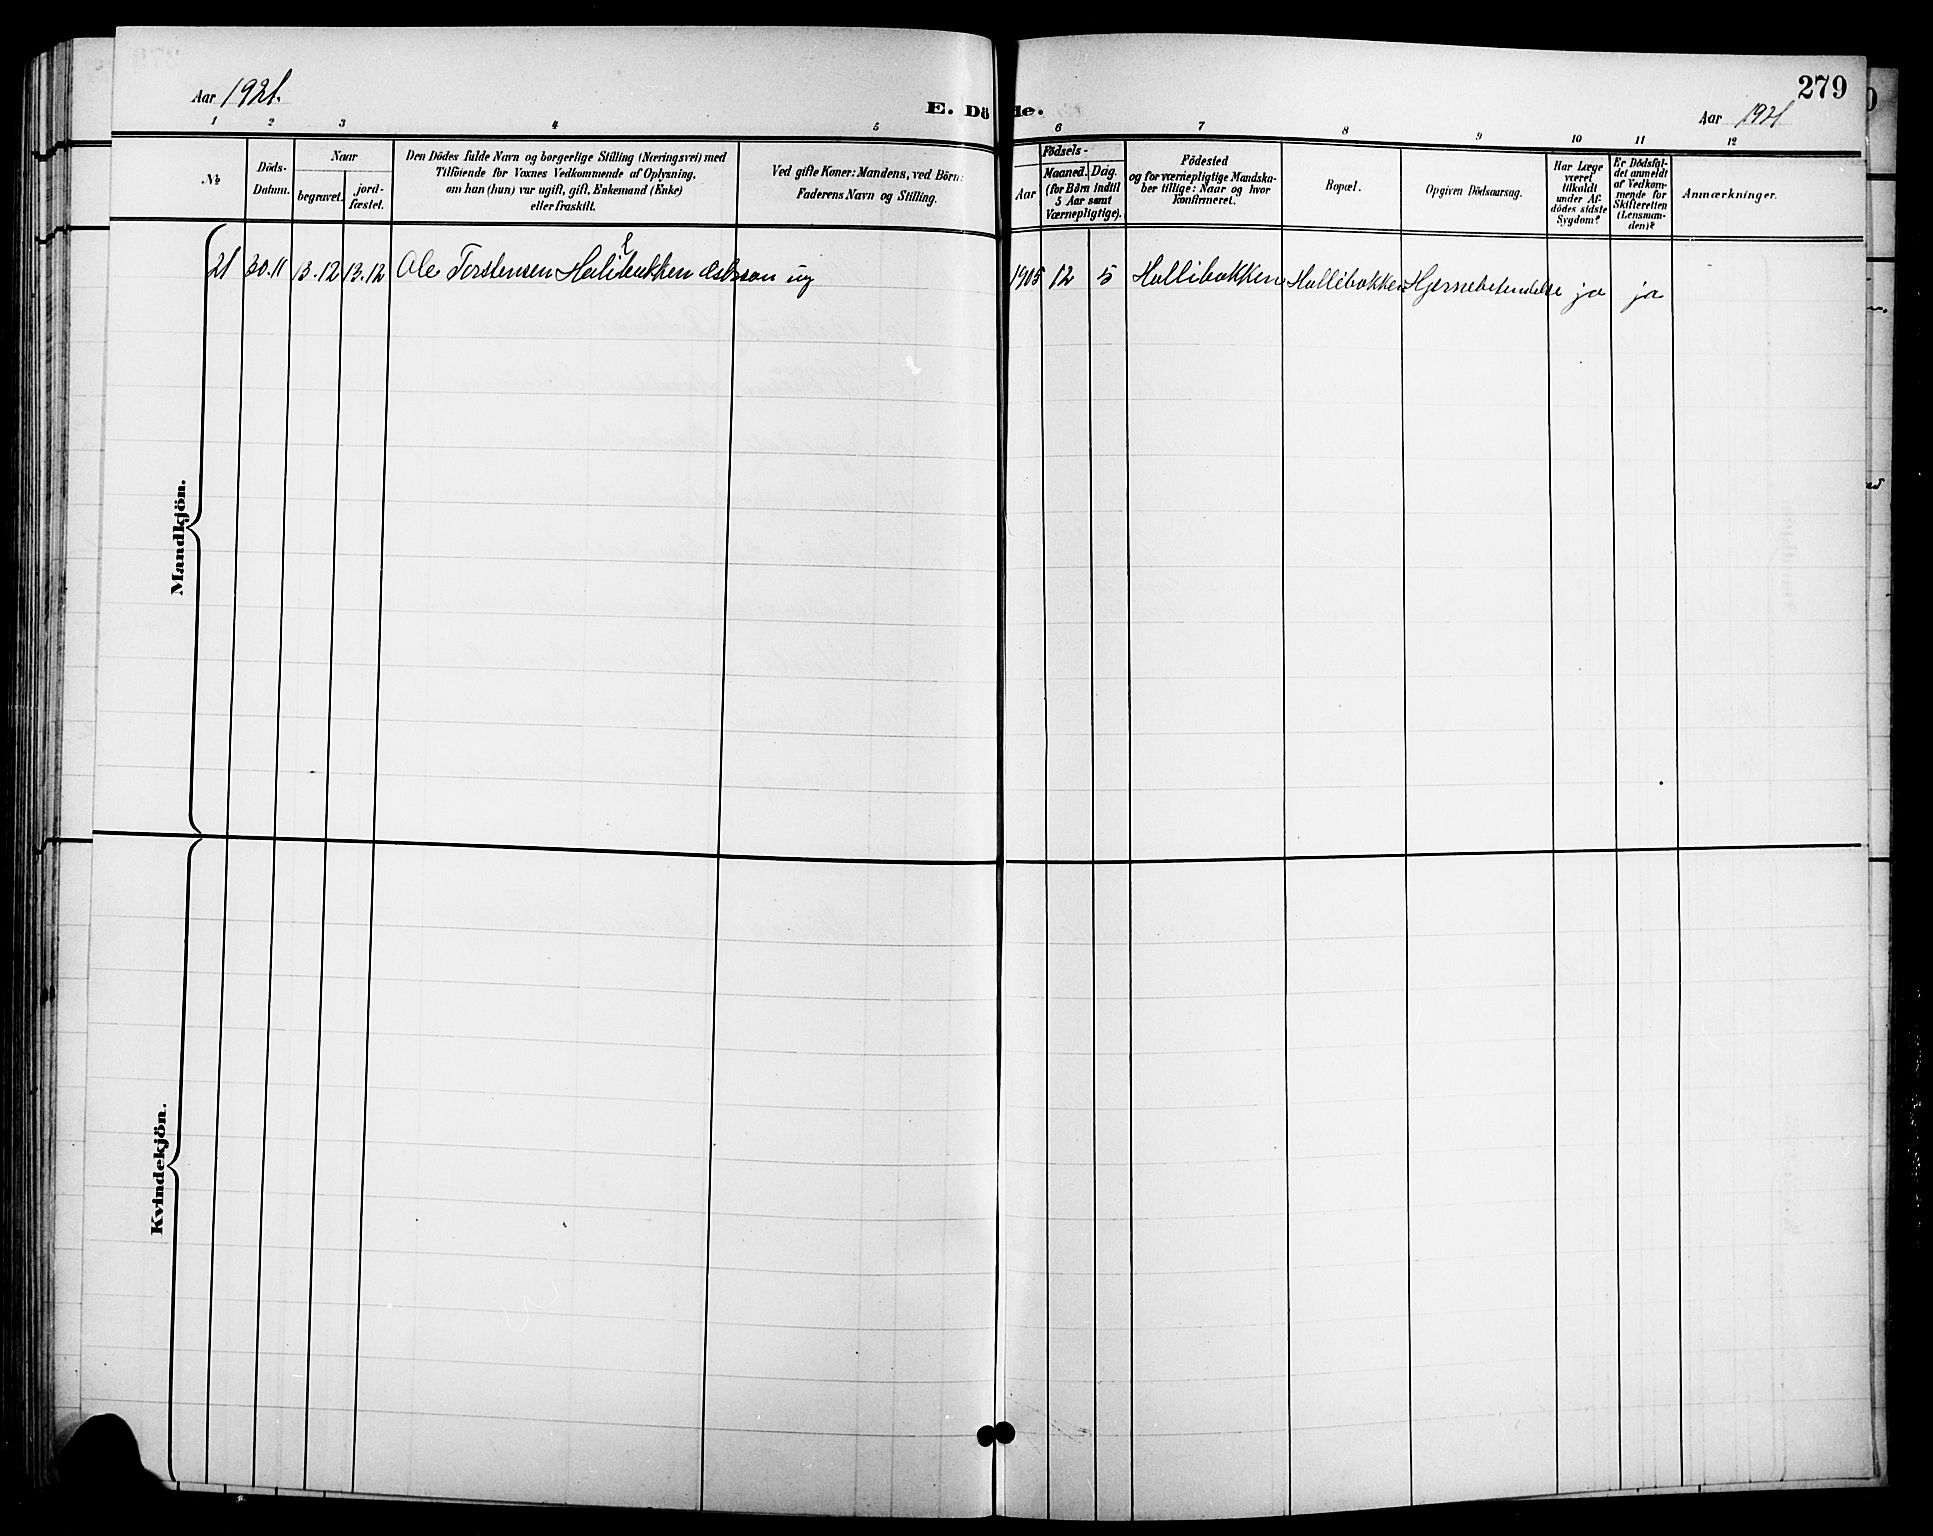 279
Aar 1921.
E. Döde.
Aar 1921
1 2 3 4 5 6 7 8 9 10 11 12
№
Döds-
Datum.
Naar
begravet.
jord-
fæstet.
Den Dödes fulde Navn og borgerlige Stilling (Næringsvei) med
Tilföiende for Voxnes Vedkommende af Oplysning,
om han (hun) var ugift, gift, Enkemand (Enke)
eller fraskilt.
Ved gifte Koner: Mandens, ved Börn:
Faderens Navn og Stilling.
Födsels-
Aar
Maaned.
Dag.
(for Börn indtil
5 Aar samt
Værnepligtige).
Födested
og for værnepligtige Mandska-
ber tillige: Naar og hvor
Konfirmeret.
Bopæl.
Opgiven Dödsaarsag.
Har Læge
været
tilkaldt
under Af-
dödes sidste
Sygdom?
Er Dödsfal-
det anmeldt
af Vedkom-
mende for
Skifteretten
(Lensman-
den)?
Anmærkninger.
21 30.11 13.12 13.12 Ole Torstensen Hallibakken ug 1905 12 5 Hallibakken Hallibakken Hjernebetendelse ja ja
Mandkjön.
Kvindekjön.